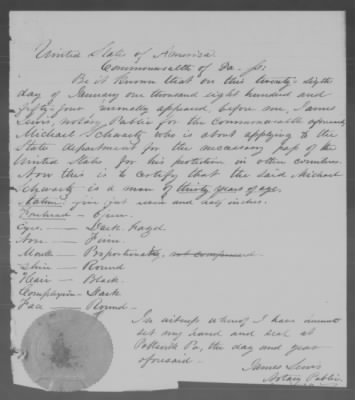 United States of America
Commonwealth of Pa. ss.
Be it known that on this twenty-sixth
day of January one thousand eight hundred and
fifty-four personally appeared before me, James
Lewis, notary Public for the Commonwealth aforesaid
Michael Schwartz who is about applying to the
State department for the necessary pass of the
United States for his protection in other countries.
Now this is to certify that the said Michael
Schwartz is a man of thirty years of age.
Stature: five feet and inches.
Forehead - Open.
Eyes - Dark hazel.
Nose - Firm.
Mouth - Proportionate, not compressed.
Chin - Round
Hair - Black.
Complexion - Dark.
Face - Round -
In witness whereof I have hereunto
set my hand and seal at
Pottsville Pa, the day and year
aforesaid -
James Lewis
Notary Public